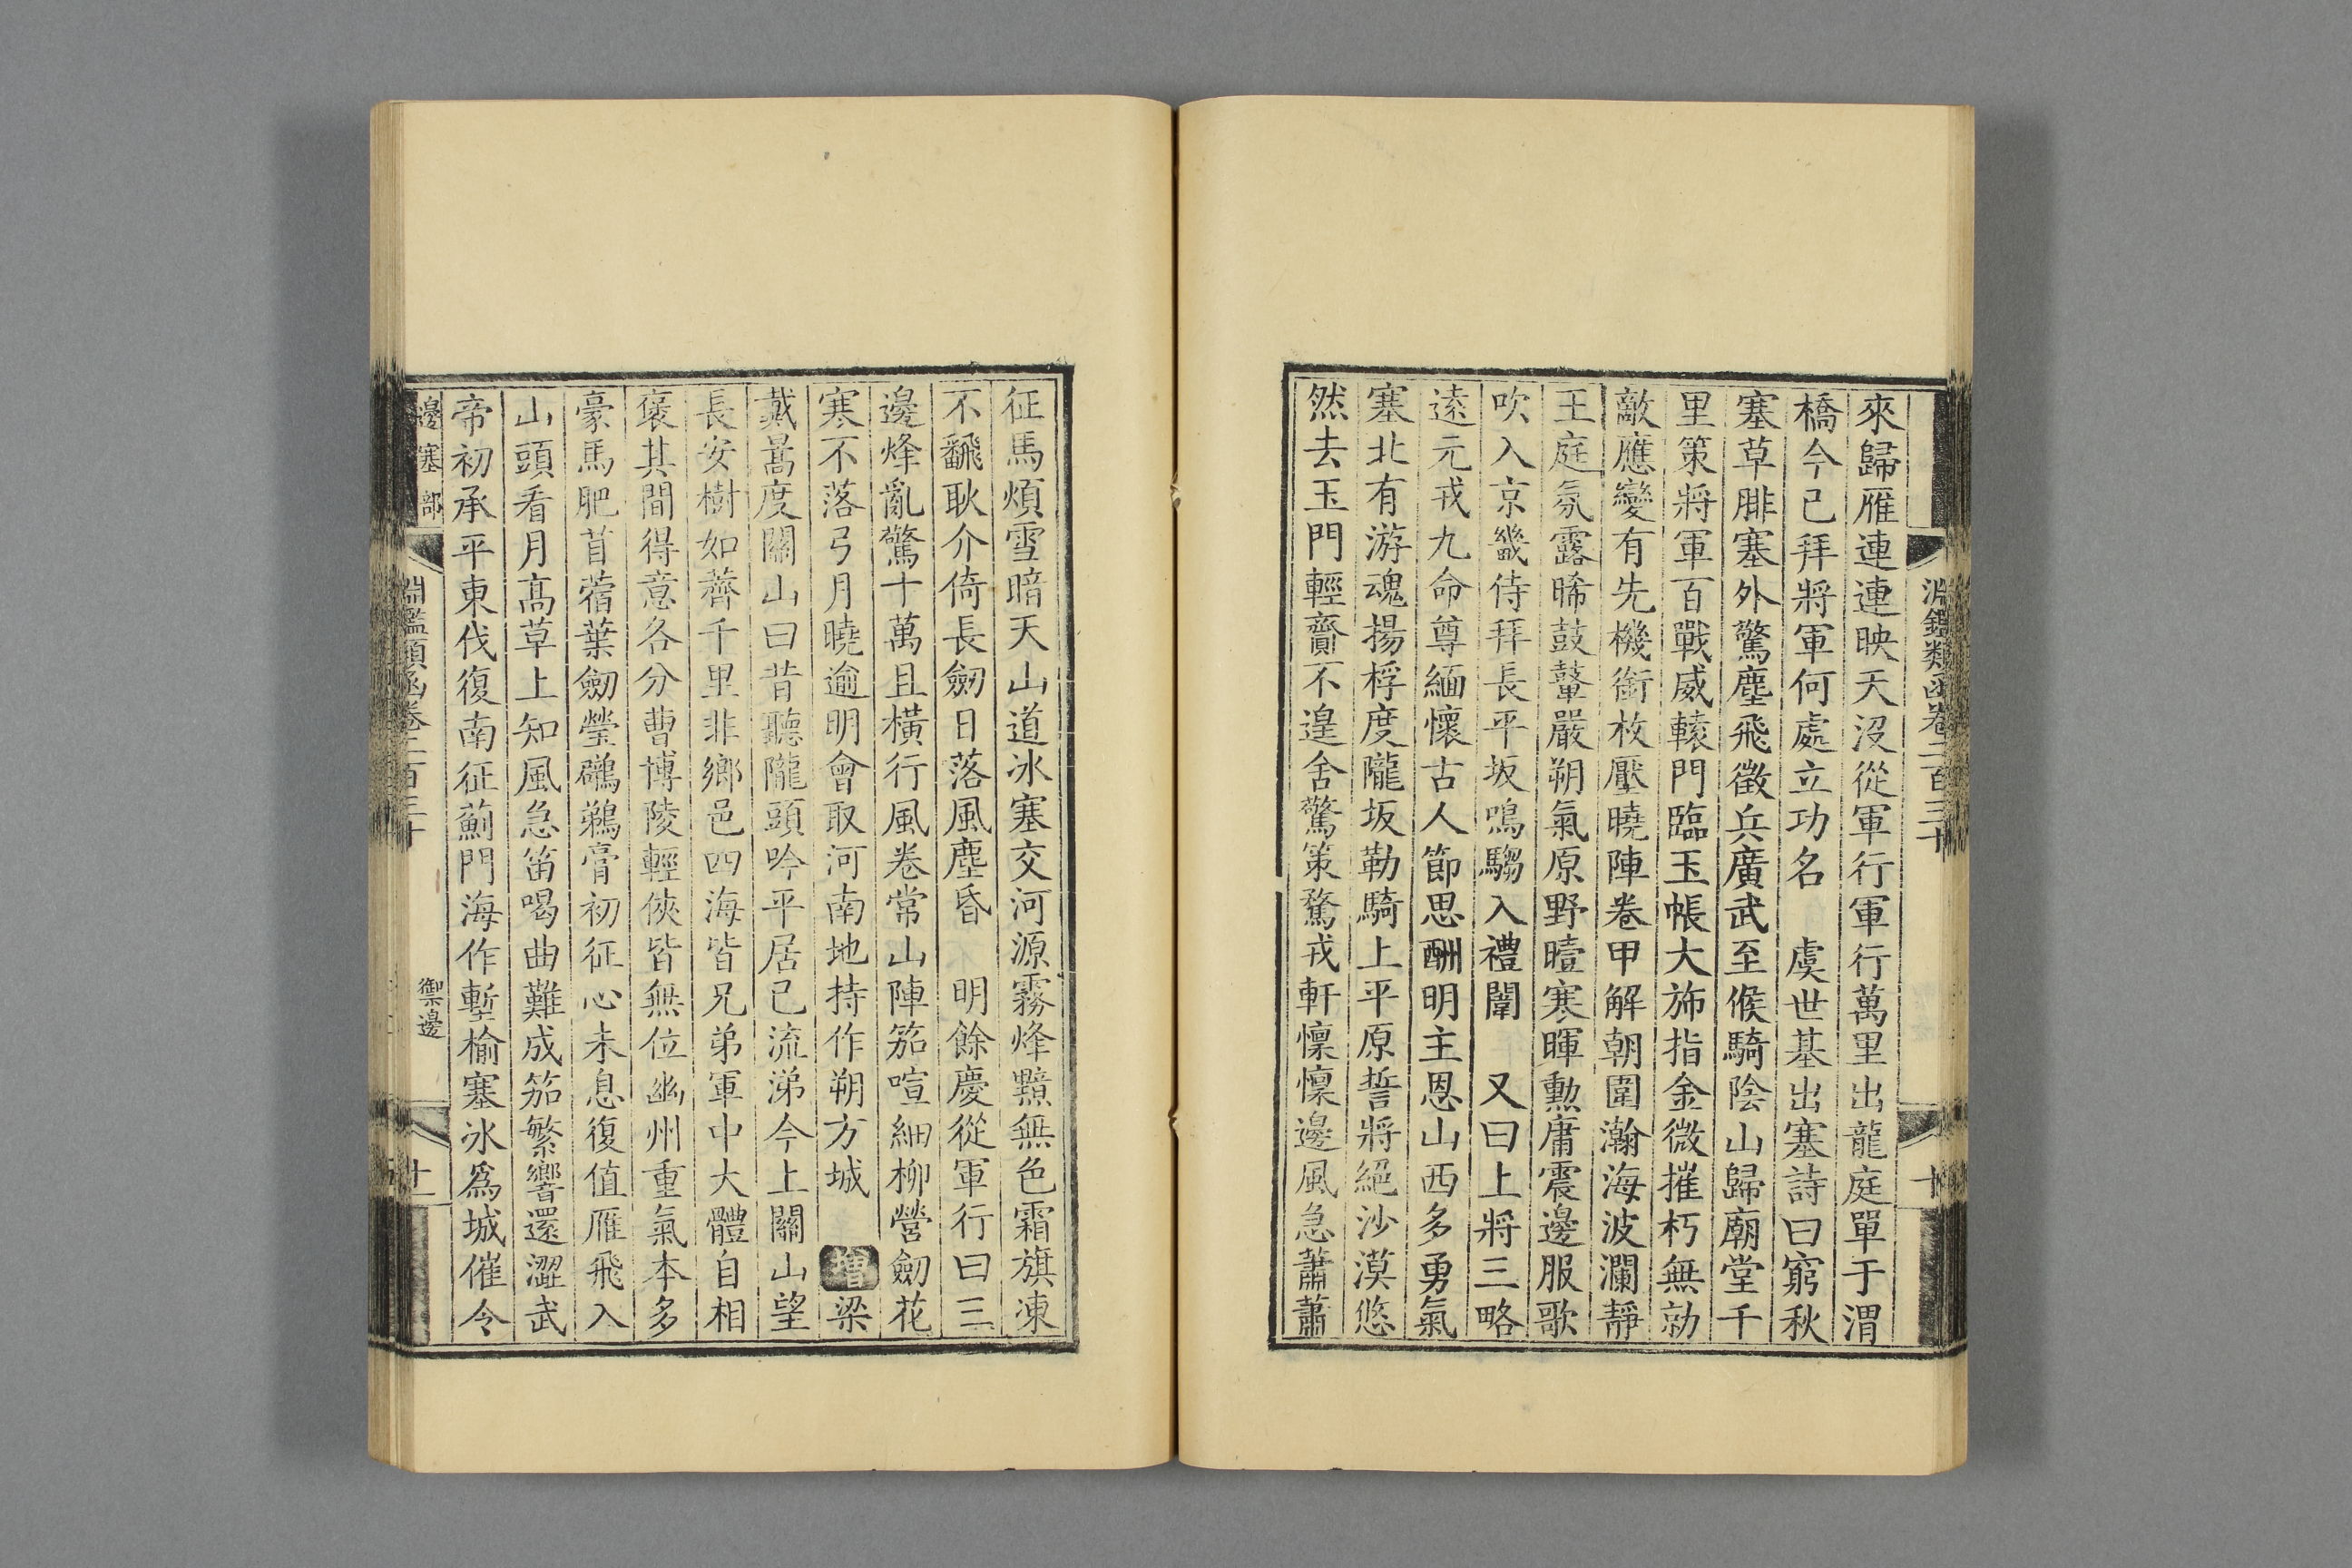 淵鑑類函卷二百三十
十
來歸雁連連映天沒從軍行軍行萬里出龍庭單于渭
橋今已拜將軍何處立功名　虞世基出塞詩曰窮秋
塞草腓塞外驚塵飛徵兵廣武至候騎陰山歸廟堂千
里策將軍百戰威轅門臨玉帳大斾指金微摧朽無勍
敵應變有先機銜枚壓曉陣卷甲解朝圍瀚海波瀾靜
王庭氛露晞鼓鼙嚴朔氣原野曀寒暉勲庸震邊服歌
吹入京畿侍拜長平坂鳴騶入禮闈　又曰上將三略
遠元戎九命尊緬懷古人節思酬明主恩山西多勇氣
塞北有游魂揚桴度隴坂勒騎上平原誓將絕沙漠悠
然去玉門輕齎不遑舍驚策騖戎軒懍懍邊風急蕭蕭
征馬煩雪暗天山道冰塞交河源霧烽黯無色霜旗凍
不飜耿介倚長劒日落風塵昏　明餘慶從軍行曰三
邊烽亂驚十萬且橫行風卷常山陣笳喧細柳營劒花
寒不落弓月曉逾明會取河南地持作朔方城　增梁
戴暠度關山曰昔聽隴頭吟平居已流涕今上關山望
長安樹如薺千里非鄉邑四海皆兄弟軍中大體自相
褒其間得意各分曹博陵輕俠皆無位幽州重氣本多
豪馬肥苜蓿葉劒瑩鸊鵜膏初征心未息復值雁飛入
山頭看月高草上知風急笛喝曲難成笳繁響還澀武
帝初承平東伐復南征薊門海作塹榆塞冰爲城催令
邊塞部
淵鑑類函卷二百三十
禦邊
十一